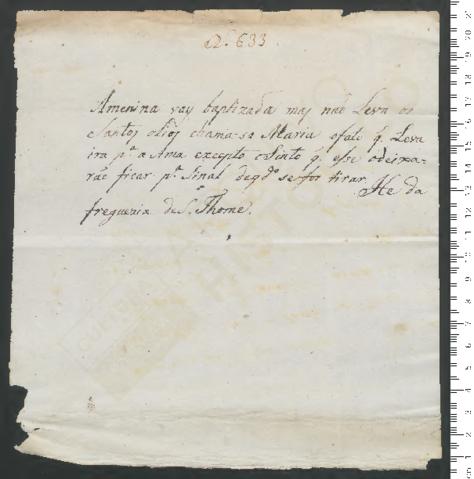 Nº 633
Amenina vay baptizada maj naõ Leva os
Santoj olioj chama-se Maria ofato q. Leva
ira p.ª a Ama excepto o Sinto q. esse odeixa-
raõ ficar p.ª Sinal de q.do se for tirar. He da
freguezia de S. Thome.